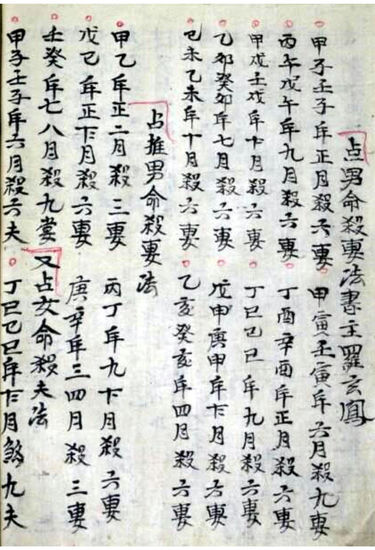 点男命殺妻法書主羅玄鳳
甲子壬子年正月殺六妻 甲寅壬寅年六月殺九妻
丙午戊午年九月殺六妻 丁酉辛酉年正月殺六妻
甲戌壬戌年卞月殺六妻 丁巳己巳年九月殺六妻
乙卯癸卯年七月殺六妻 戊申庚申年卞月殺六妻
己未乙未年十月殺六妻 乙亥癸亥年四月殺六妻
占推男命殺妻法
甲乙年正二月殺三妻 丙丁年九卞月殺六妻
戊己年正卞月殺六妻 庚辛年三四月殺三妻
壬癸年七八月殺九妻 又占女命殺夫法
甲子壬子年六月殺六夫 丁巳己巳年卞月煞九夫